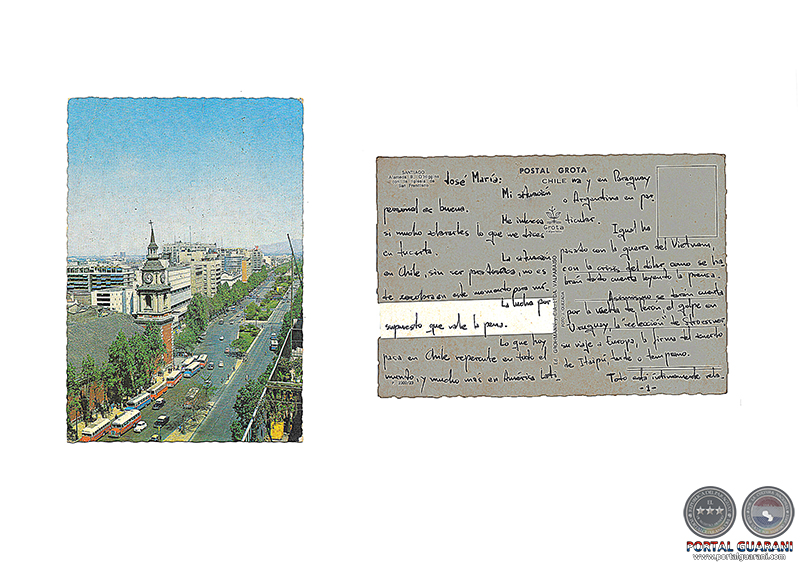 SANTIAGO
Alameda B. O'Higgins
con la Iglesia de
San Francisco
POSTAL GROTA
CHILE
Grota
José María:
Mi situación
personal es buena.
Me interesa
si mucho aclararles lo que me dices
en tu carta.
La situación
en Chile, sin ser pesimista, no es
en este momento para mí.
La lucha por
supuesto que vale la pena.
Lo que hoy
pasa en Chile repercute en todo el
mundo, y mucho más en América Lati-
na y en Paraguay
o Argentina en par-
ticular.
Igual ha
pasado con la guerra del Vietnam,
con la crisis del dólar como se ha-
brán dado cuenta leyendo la prensa.
Asimismo se darán cuenta
por la vuelta de Perón, el golpe en
Uruguay, la "elección" de Stroessner,
su viaje a Europa, la firma del
de Itaipú tarde o temprano.
Todo está íntimamente rela-
-1-
PORTAL GUARANI
www.portalguarani.com